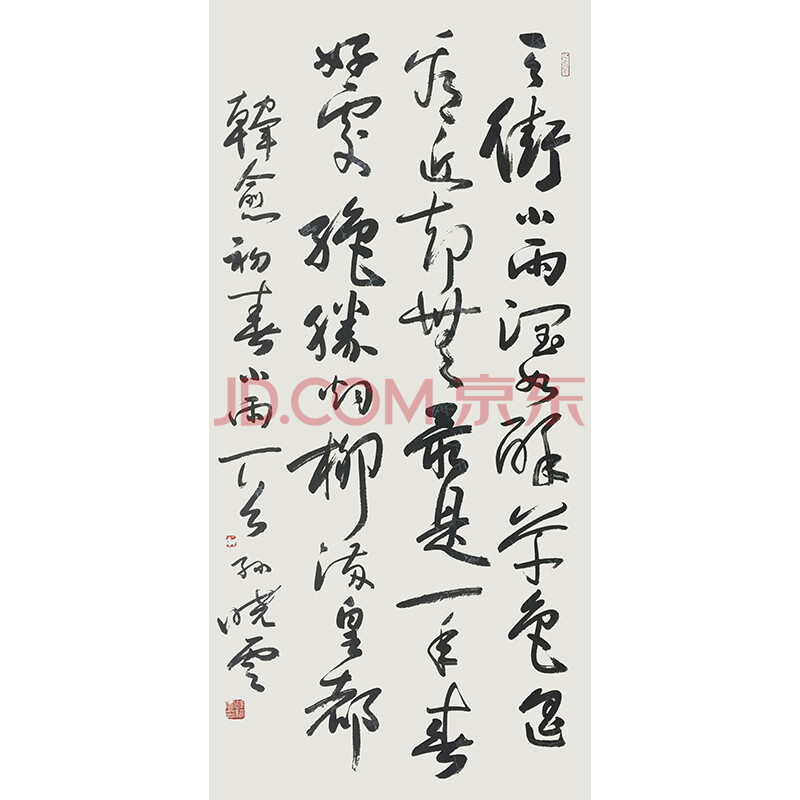 天街小雨潤如酥草色遥
看近却無最是一年春
好處絶勝烟柳滿皇都
韓愈初春小雨丁 孫曉雲
JD.COM 京东